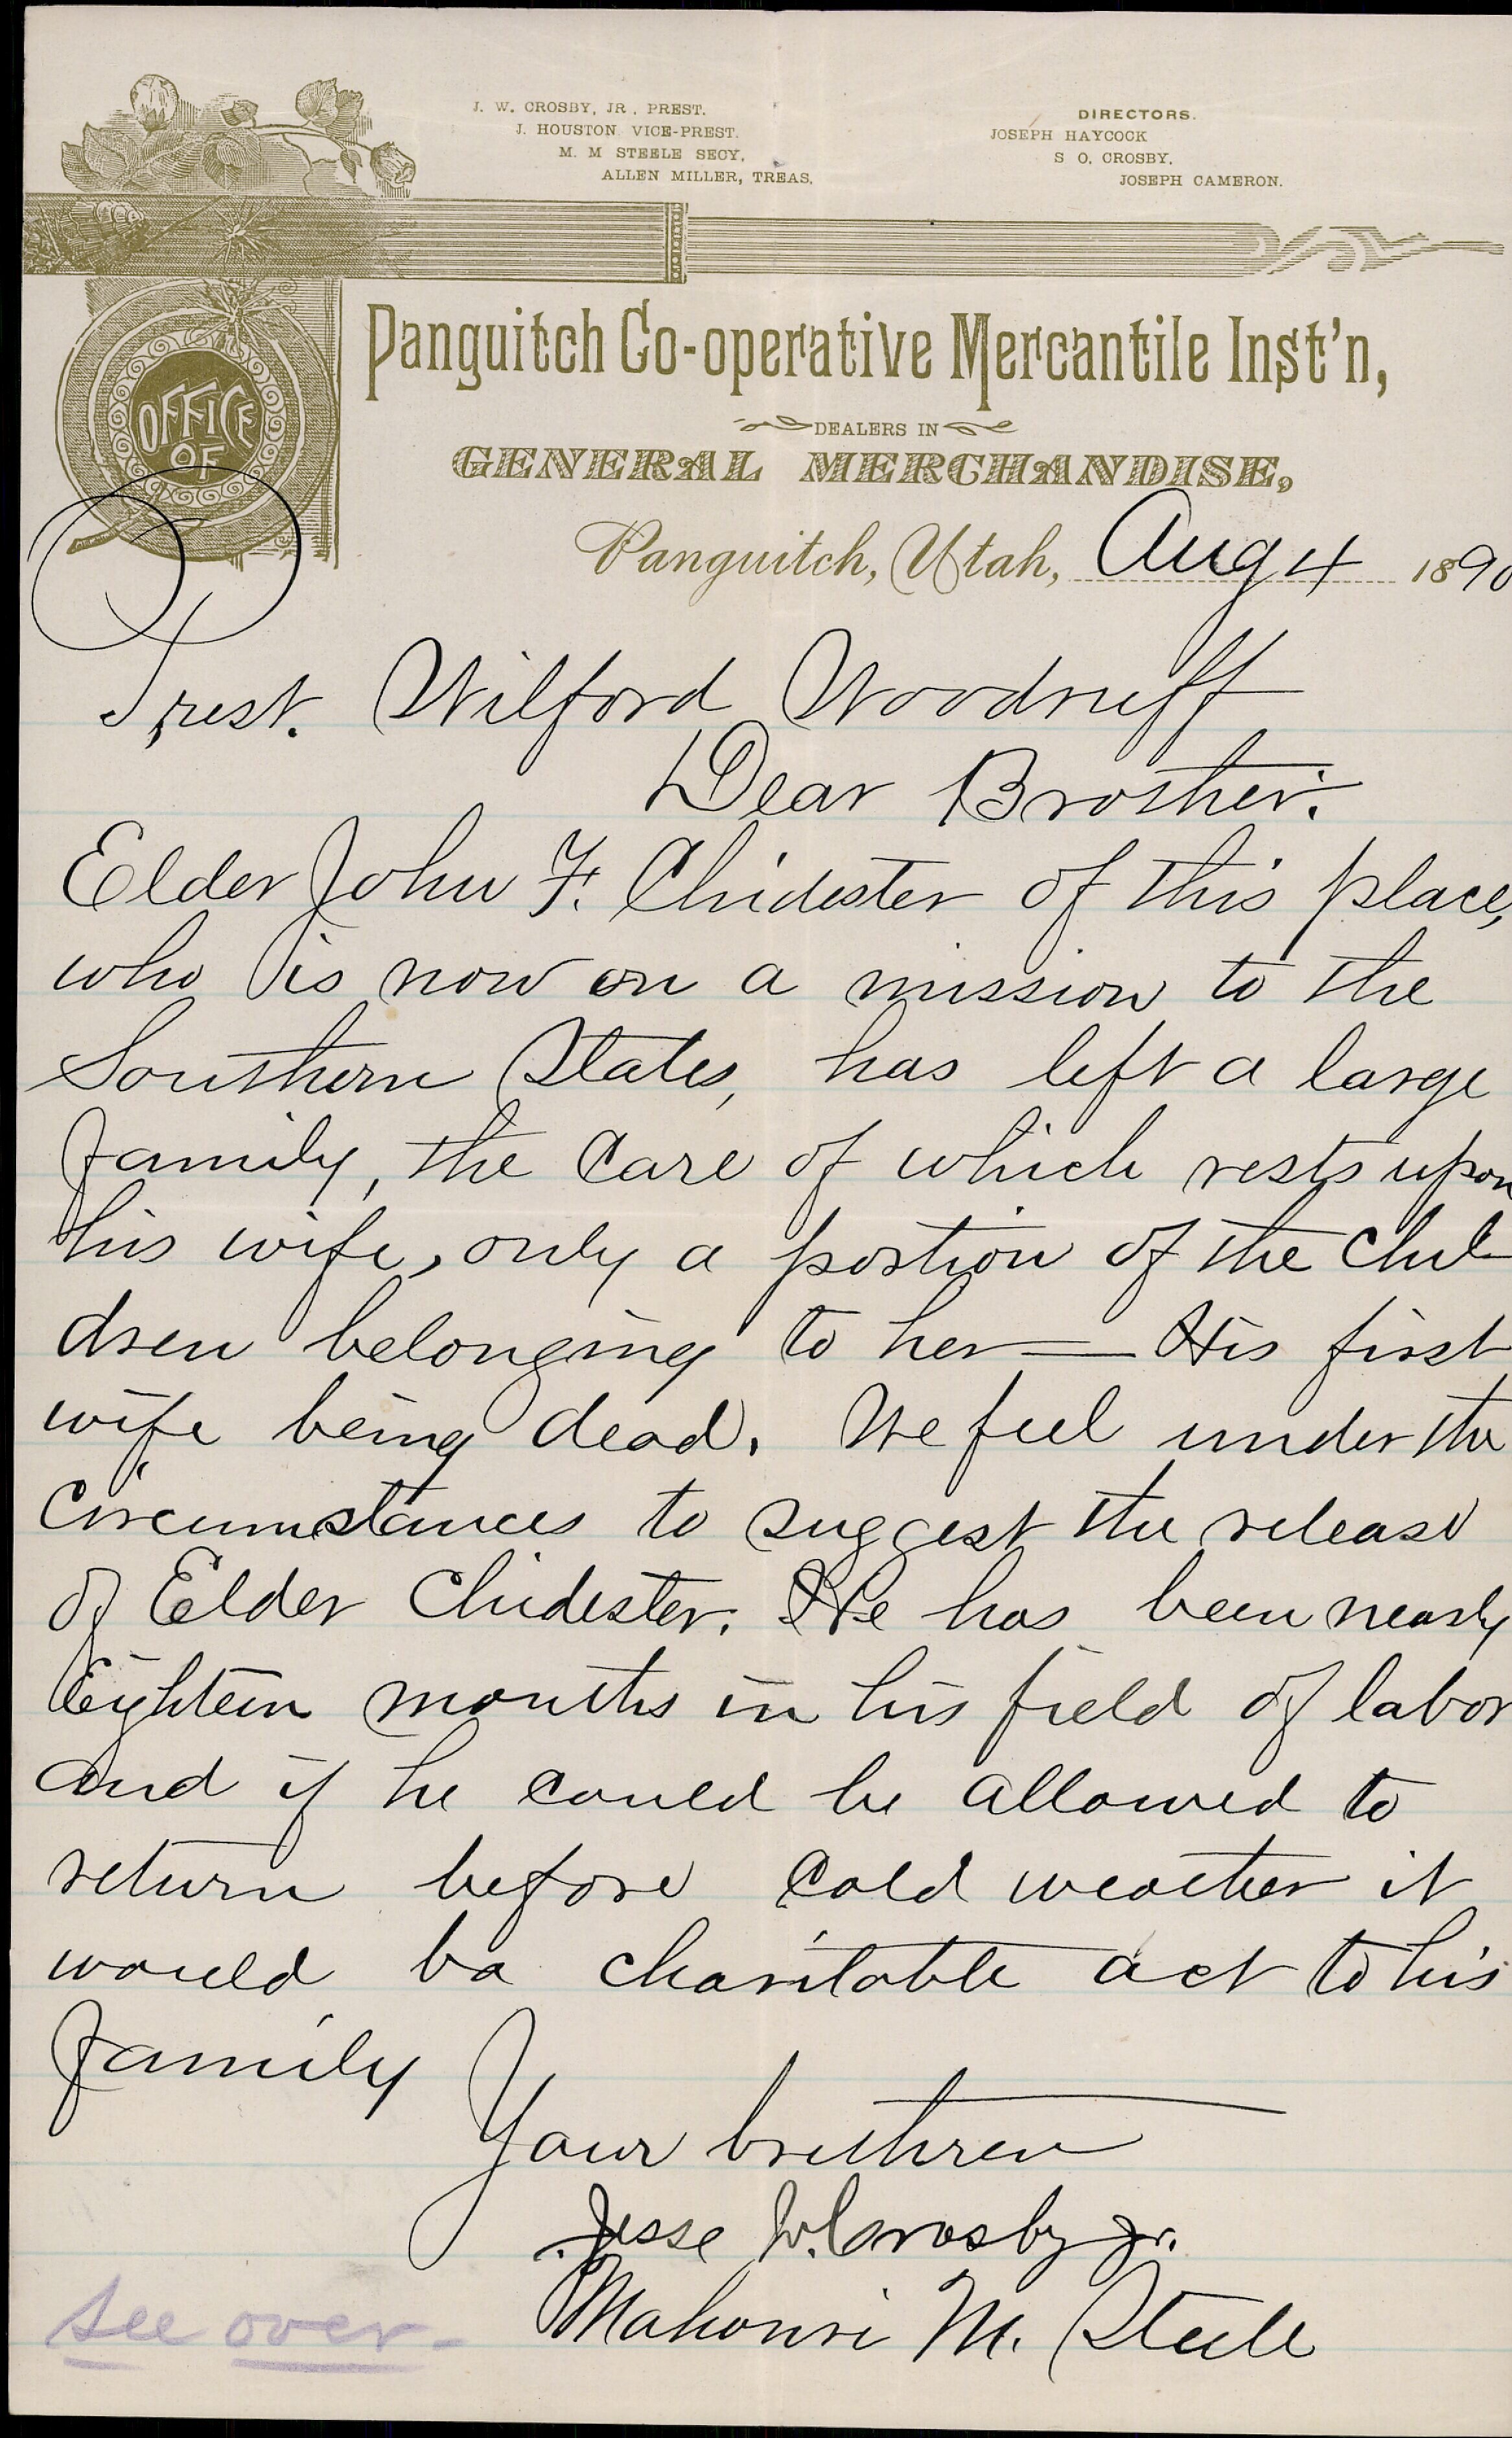 J. W. CROSBY, JR., PREST.
J. HOUSTON VICE-PREST.
M. M STEELE SECY,
ALLEN MILLER, TREAS.
DIRECTORS.
JOSEPH HAYCOCK
S O. CROSBY,
JOSEPH CAMERON.
OFFICE
OF
Panguitch Co-operative Mercantile Inst'n,
DEALERS IN
GENERAL MERCHANDISE,
Panguitch, Utah, Aug 4 1890
Prest. Wilford Woodruff
Dear Brother:
Elder John F. Chidester of this place,
who is now on a mission to the
Southern States, has left a large
family, the care of which rests upon
his wife, only a portion of the chil
dren belonging to her— His first
wife being dead. We feel under the
circumstances to suggest the release
of Elder Chidester. He has been nearly
Eighteen months in his field of labor
and if he could be allowed to
return before cold weather it
would be charitable act to his
family
Your brethren
Jesse W. Crosby Jr.
Mahonri M. Steele
see over-